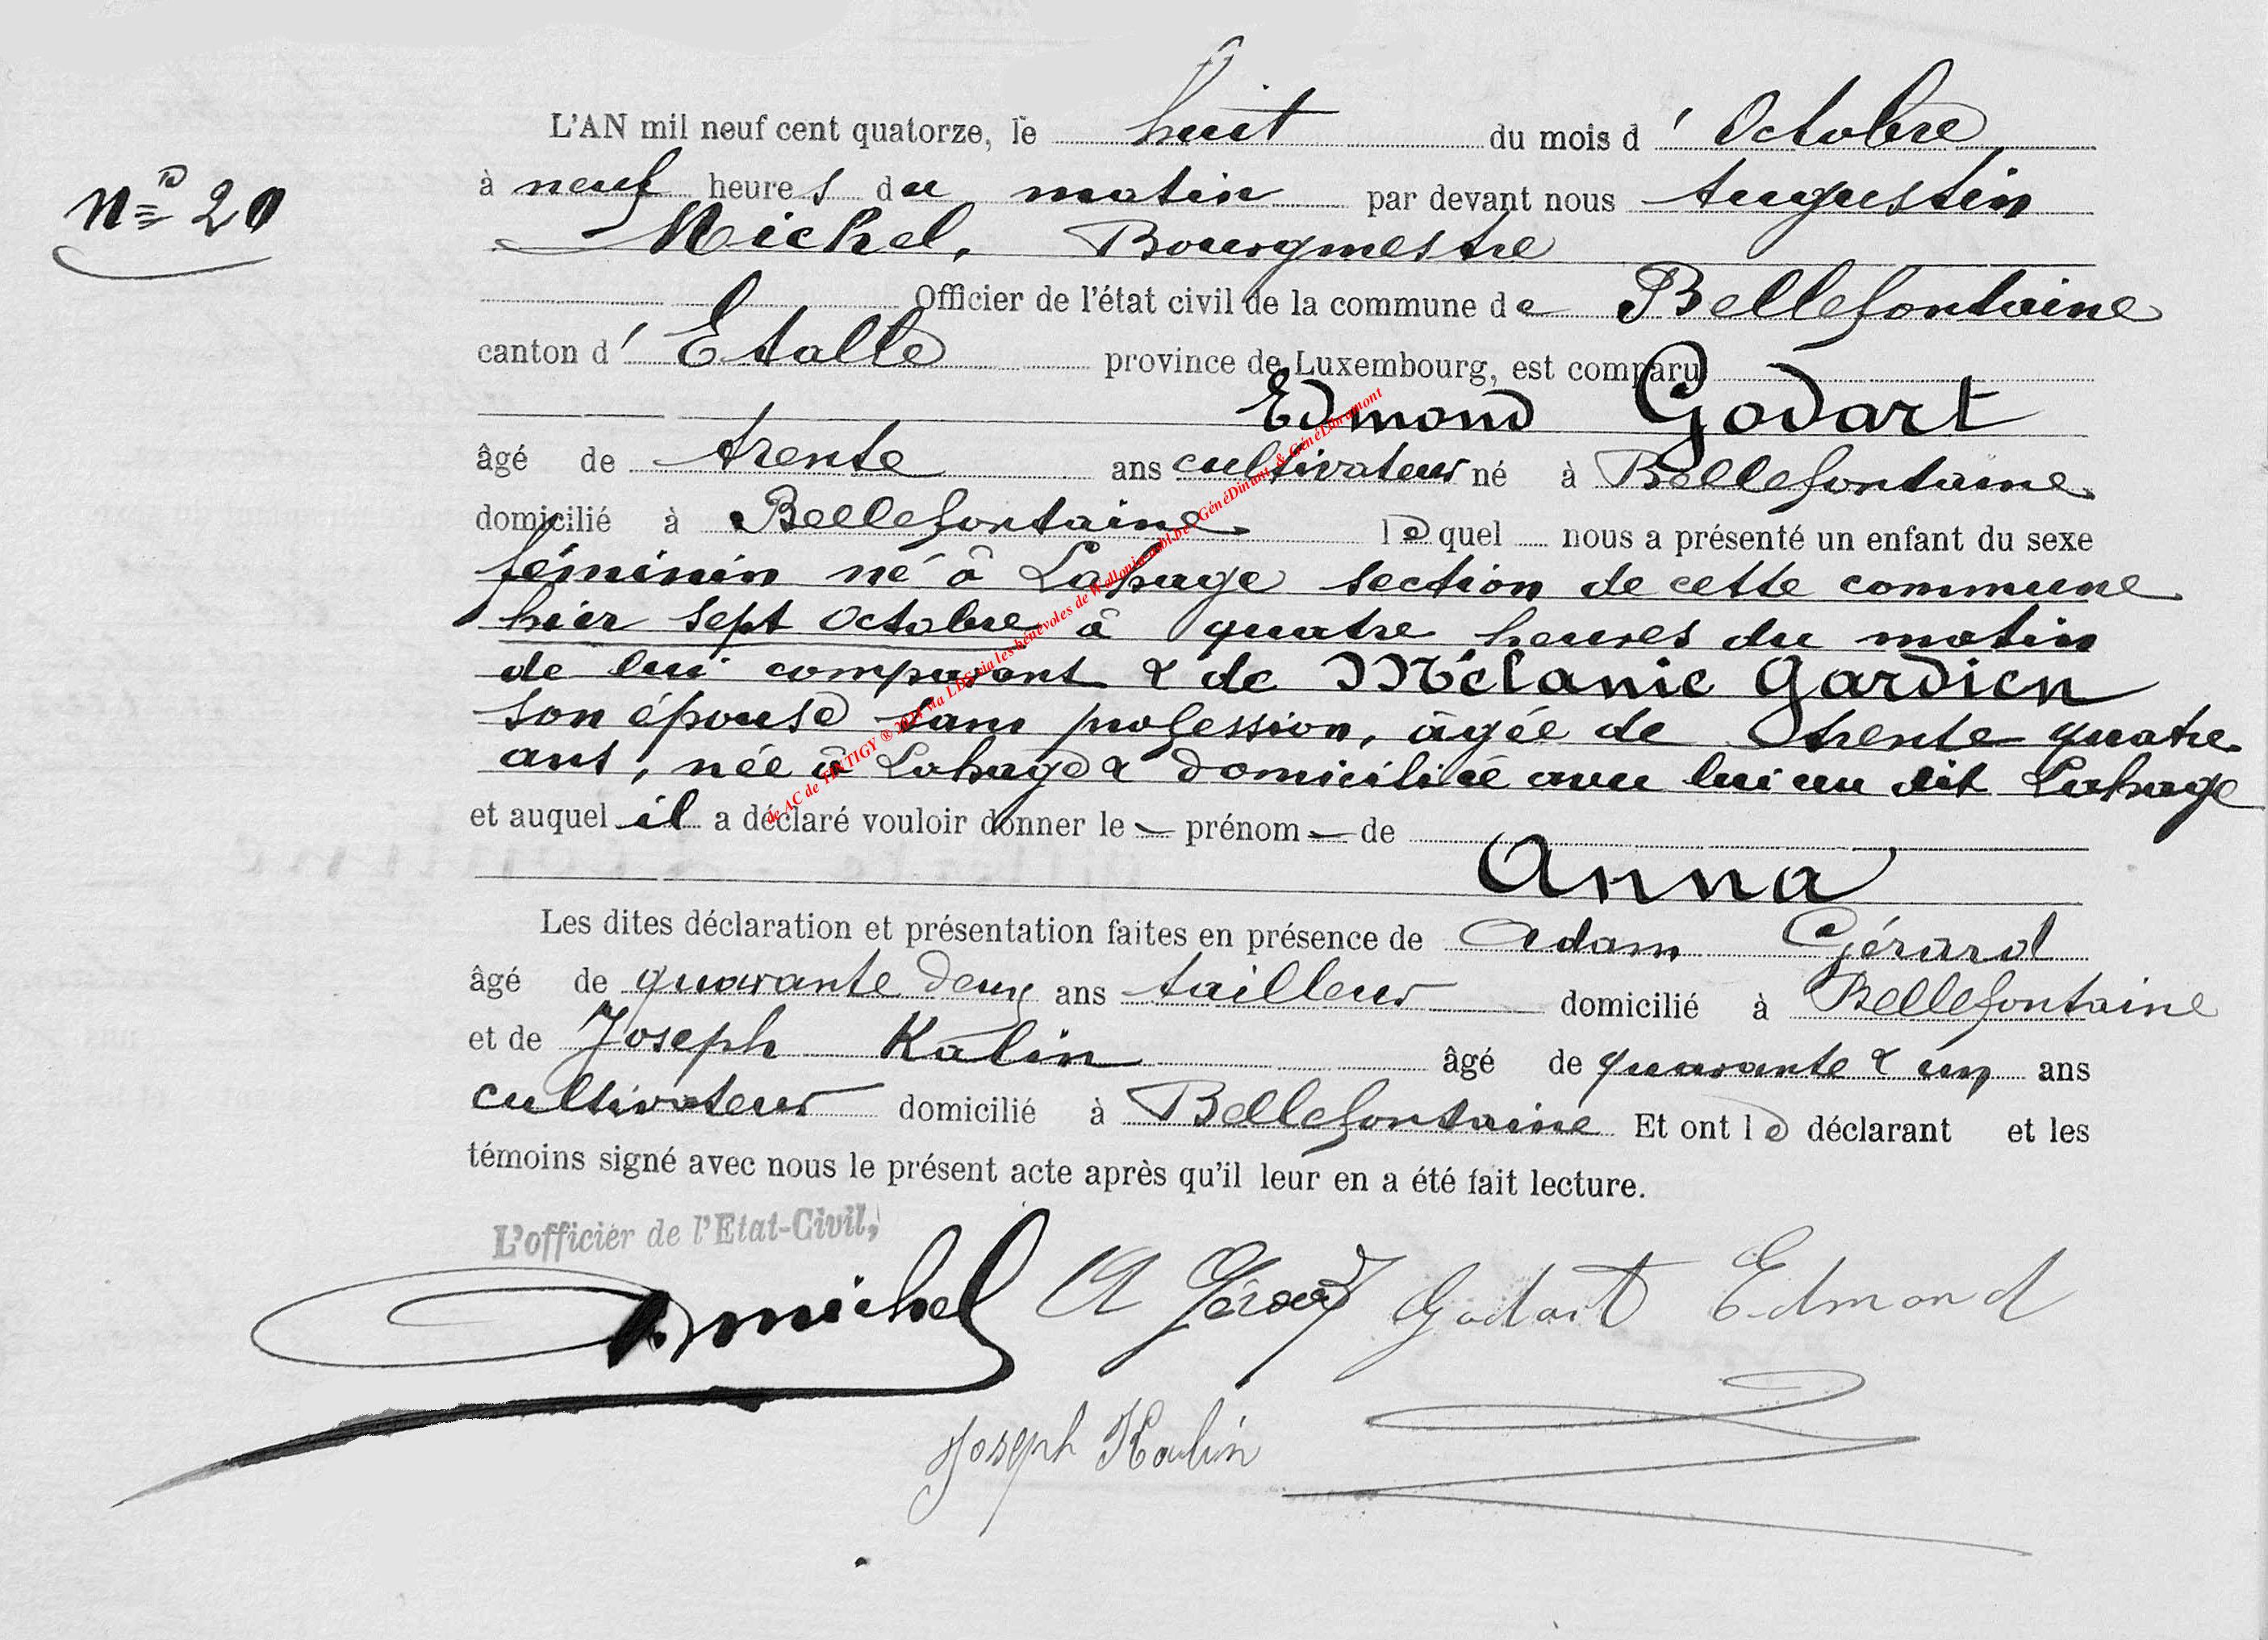 L'AN mil neuf cent quatorze, le huit du mois d' Octobre
Nº 20
à neuf heures du matin par devant nous Augustin
Michel, Bourgmestre
Officier de l'état civil de la commune de Bellefontaine
canton d' Etalle province de Luxembourg, est comparu
Edmond Godart
âgé de trente ans cultivateur né à Bellefontaine
domicilié à Bellefontaine lequel nous a présenté un enfant du sexe
féminin né à Lahage section de cette commune
hier sept Octobre à quatre heures du matin
de lui comparant & de Mélanie Gardien
son épouse sans profession, âgée de trente quatre
ans, née à Lahage & domiciliée avec lui au dit Lahage
et auquel il a déclaré vouloir donner le prénom de
Anna
Les dites déclaration et présentation faites en présence de Adam Gérard
âgé de quarante deux ans tailleur domicilié à Bellefontaine
et de Joseph Kalin âgé de quarante & un ans
cultivateur domicilié à Bellefontaine Et ont le déclarant et les
témoins signé avec nous le présent acte après qu'il leur en a été fait lecture.
L'officier de l'Etat-Civil,
A. Michel A Gérard Godart Edmond
Joseph Kalin
de AC de TINTIGY ® 2014 via LDS via les bénévoles de GénéDinant & GénéLibramont